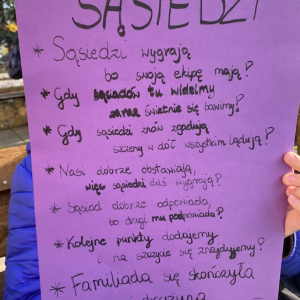 SĄSIEDZI
* Sąsiedzi wygrają
bo swoją ekipę mają?
* Gdy sąsiadów tu widzimy
zaraz świetnie się bawimy?
* Gdy sąsiedzi znów zgadują
szczeny w dół wszystkim lądują?
* Nasi dobrze obstawiają,
więc sąsiedzi dziś wygrają?
* Sąsiad dobrze odpowiada,
bo drugi mu podpowiada?
* Kolejne punkty dodajemy
i na szczycie się znajdujemy?
* Familiada się skończyła
drużyna